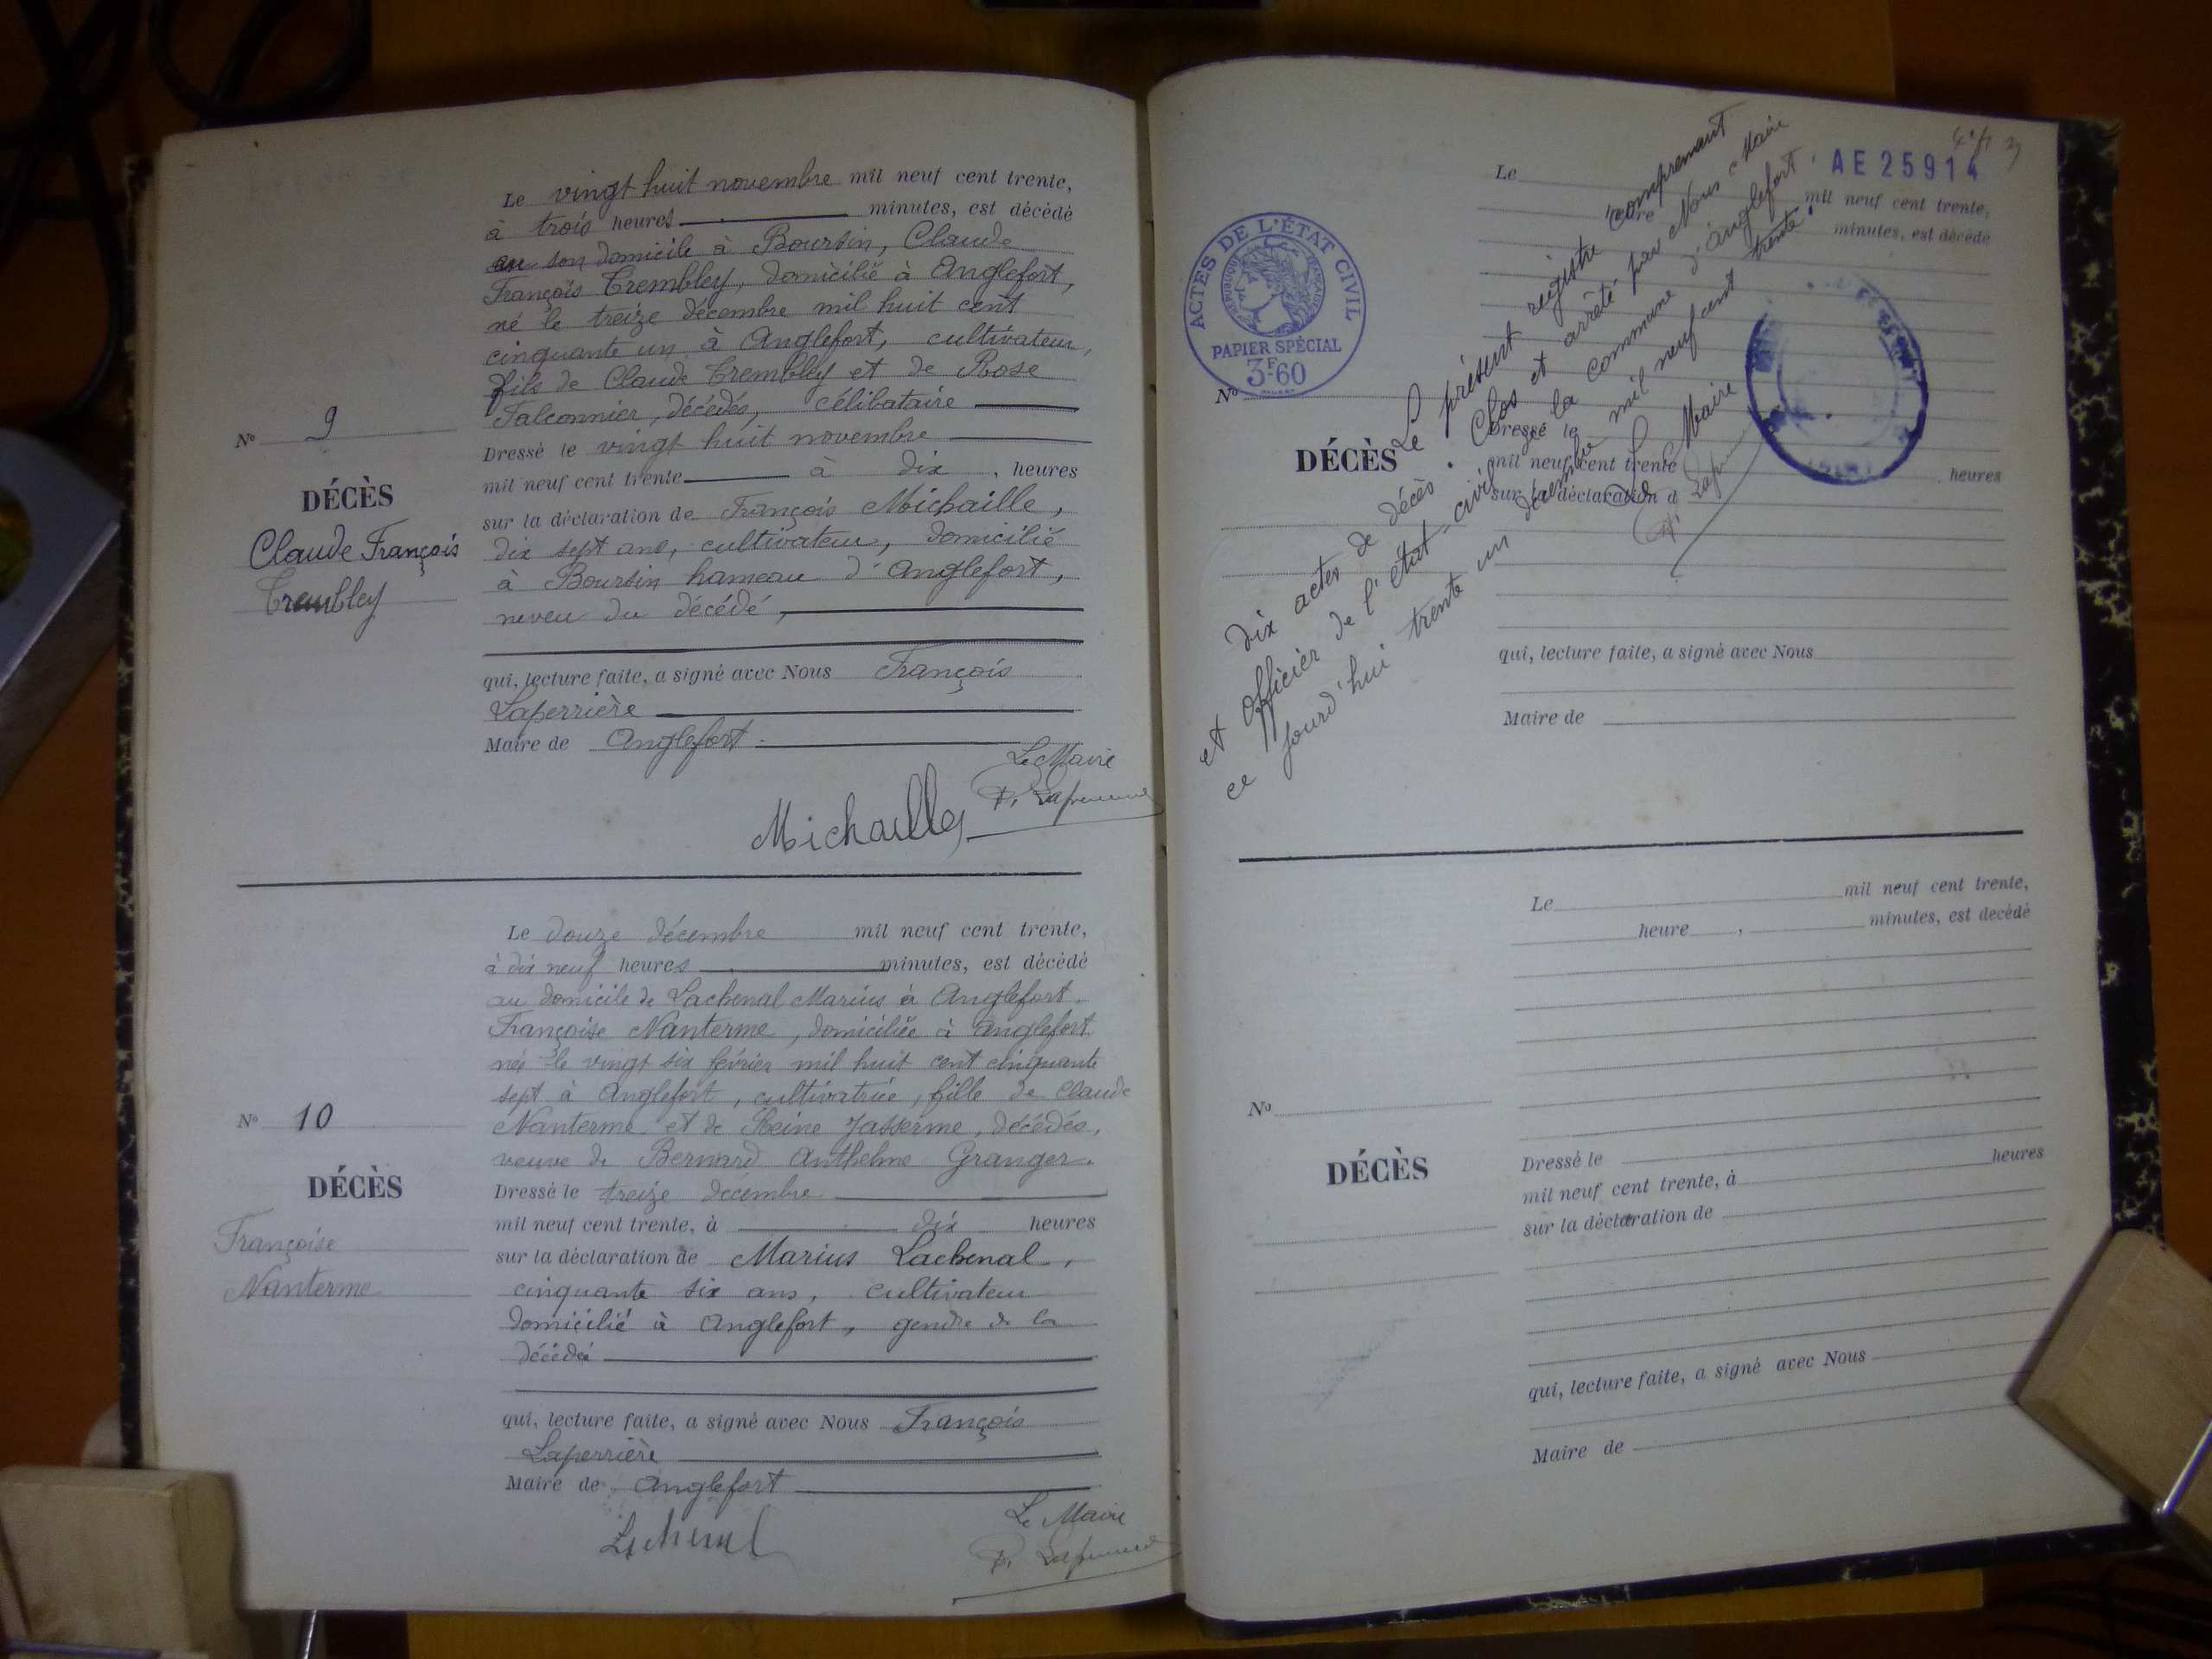 Le vingt huit novembre mil neuf cent trente,
à trois heures minutes, est décédé
en son domicile à Boursin, Claude
François Trembley, domicilié à Anglefort,
né le treize décembre mil huit cent
cinquante un à Anglefort, cultivateur,
fils de Claude Trembley et de Rose
Falconnier, décédés, célibataire
Dressé le vingt huit novembre
mil neuf cent trente à dix, heures
sur la déclaration de François Michaille,
dix sept ans, cultivateur, domicilié
à Boursin hameau d'Anglefort,
neveu du décédé,
qui, lecture faite, a signé avec Nous François
Laperrière
Maire de Anglefort.
Le Maire
Michaille
No 9
DÉCÈS
Claude François
Trembley
Le douze décembre mil neuf cent trente,
à dix neuf heures minutes, est décédé
au domicile de Lachenal Marius à Anglefort.
Françoise Nanterme, domiciliée à Anglefort
née le vingt six février mil huit cent cinquante
sept à Anglefort, cultivatrice, fille de Claude
Nanterme et de Jasserme, décédés,
veuve de Bernard Anthelme Granger.
Dressé le treize decembre
mil neuf cent trente, à dix heures
sur la déclaration de Marius Lachenal,
cinquante six ans, cultivateur
domicilié à Anglefort, gendre de la
décédée
qui, lecture faite, a signé avec Nous François
Laperrière
Maire de Anglefort
Lachenal
Le Maire
No 10
DÉCÈS
Françoise
Nanterme
AE 25914
ACTES DE L'ÉTAT CIVIL
RÉPUBLIQUE FRANÇAISE
PAPIER SPÉCIAL
3F.60
Le présent registre comprenant
dix actes de décès. Clos et arrêté par Nous Maire
et officier de l'état-civil de la commune d'Anglefort.
ce jourd'hui trente un décembre mil neuf cent trente.
Le Maire
Le mil neuf cent trente,
heure minutes, est décédé
No
DÉCÈS
Dressé le
mil neuf cent trente heures
sur la déclaration d
qui, lecture faite, a signé avec Nous
Maire de
Le mil neuf cent trente,
heure , minutes, est décédé
No
DÉCÈS
Dressé le
mil neuf cent trente, à heures
sur la déclaration de
qui, lecture faite, a signé avec Nous
Maire de